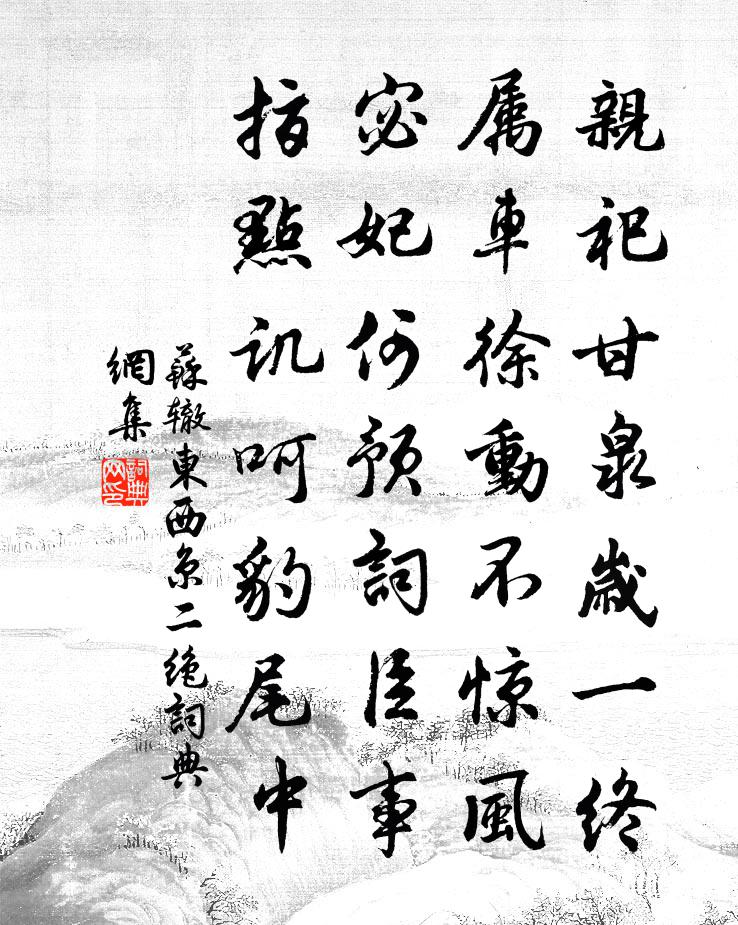 親祀甘泉歲一終
属車徐動不惊風
宓妃何預詞臣事
指點讥呵豹尾中
蘇辙東西京二绝詞典
網集
詞典
网印